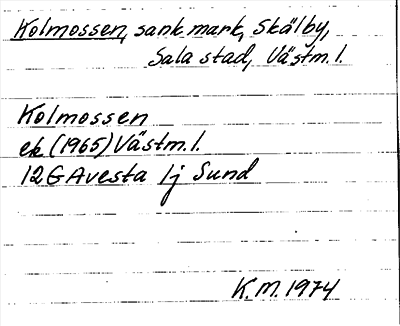 Kolmossen, sank mark, Skälby,
Sala stad, Västm.l.
Kolmossen
ek (1965) Västm.l.
12G Avesta 1j Sund
K.M. 1974